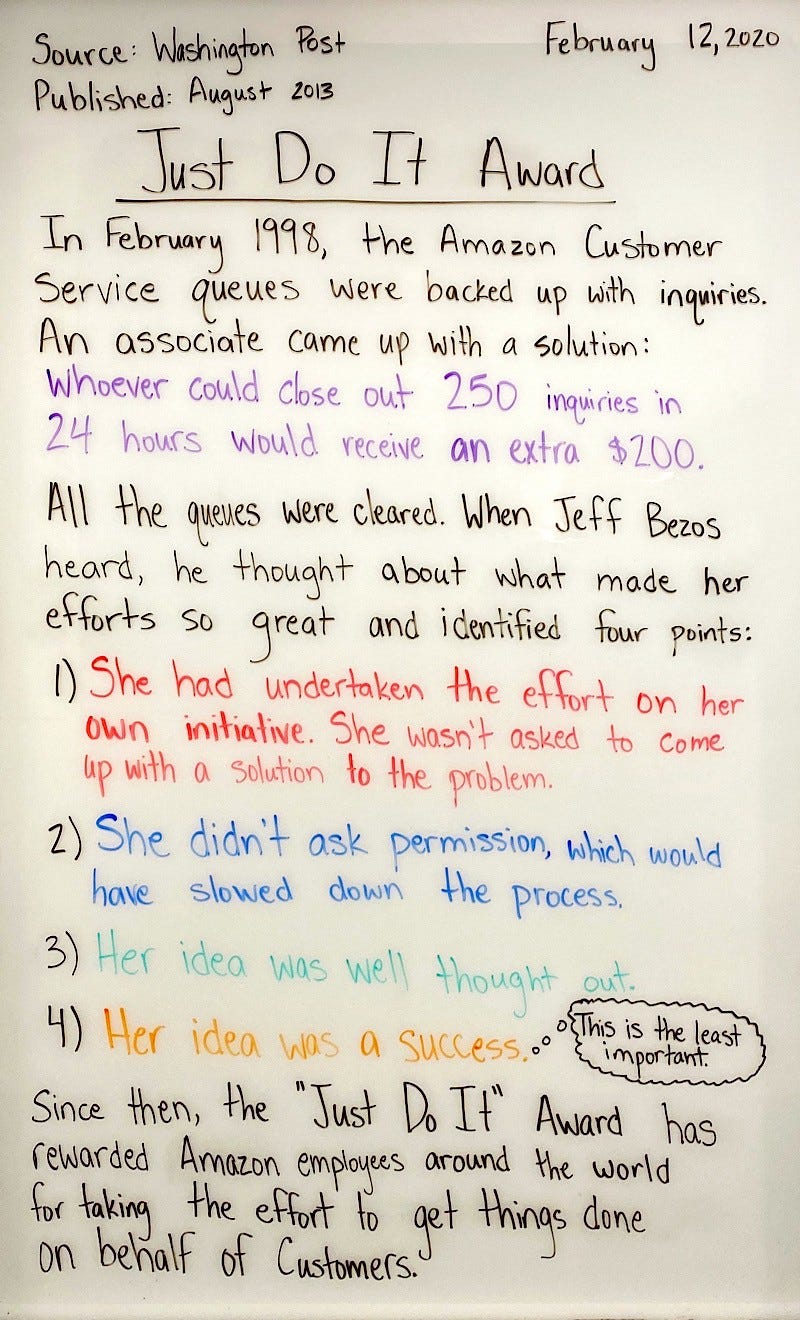 Source: Washington Post
February 12, 2020
Published: August 2013
Just Do It Award
In February 1998, the Amazon Customer
Service queues were backed up with inquiries.
An associate came up with a solution:
Whoever could close out 250 inquiries in
24 hours would receive an extra $200.
All the queues were cleared. When Jeff Bezos
heard, he thought about what made her
efforts so great and identified four points:
1) She had undertaken the effort on her
own initiative. She wasn't asked to come
up with a solution to the problem.
2) She didn't ask permission, which would
have slowed down the process.
3) Her idea was well thought out.
4) Her idea was a success.
This is the least
important.
Since then, the "Just Do It" Award has
rewarded Amazon employees around the world
for taking the effort to get things done
on behalf of Customers.